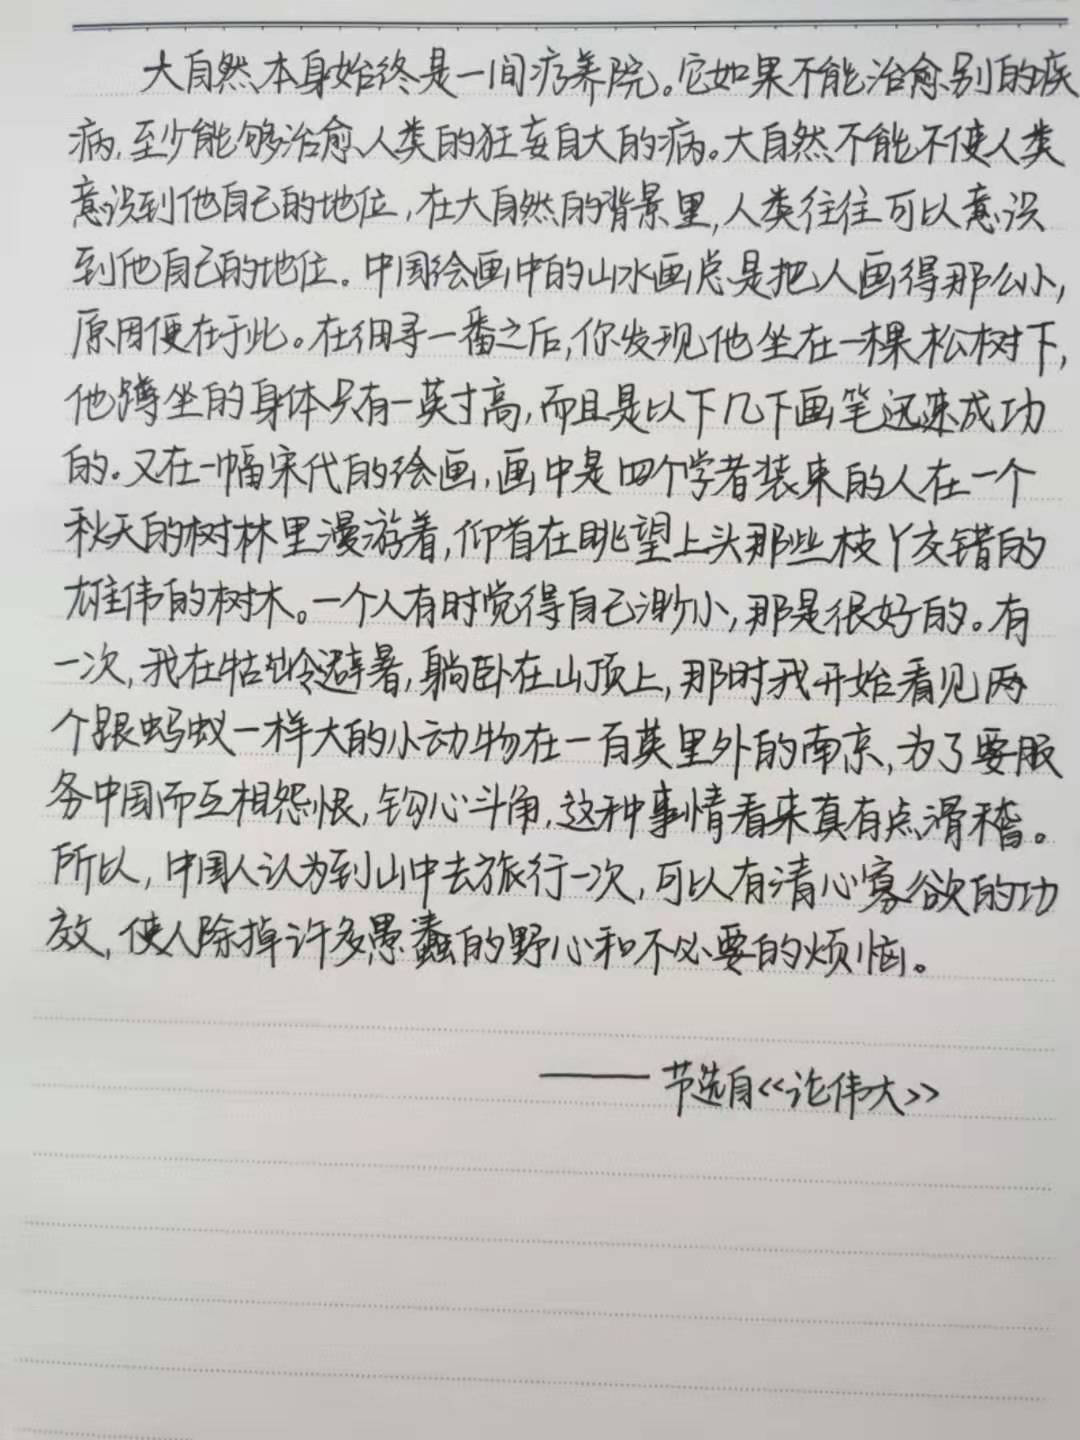 大自然本身始终是一间疗养院。它如果不能治愈别的疾
病,至少能够治愈人类的狂妄自大的病。大自然不能不使人类
意识到他自己的地位,在大自然的背景里,人类往往可以意识
到他自己的地位。中国绘画中的山水画总是把人画得那么小,
原因便在于此。在细寻一番之后,你发现他坐在一棵松树下,
他蹲坐的身体只有一英寸高,而且是以下几下画笔迅速成功
的。又在一幅宋代的绘画,画中是四个学者装束的人在一个
秋天的树林里漫游着,仰首在眺望上头那些枝丫交错的
雄伟的树木。一个人有时觉得自己渺小,那是很好的。有
一次,我在牯岭避暑,躺卧在山顶上,那时我开始看见两
个跟蚂蚁一样大的小动物在一百英里外的南京,为了要服
务中国而互相怨恨,钩心斗角,这种事情看来真有点滑稽。
所以,中国人认为到山中去旅行一次,可以有清心寡欲的功
效,使人除掉许多愚蠢的野心和不必要的烦恼。
——节选自《论伟大》